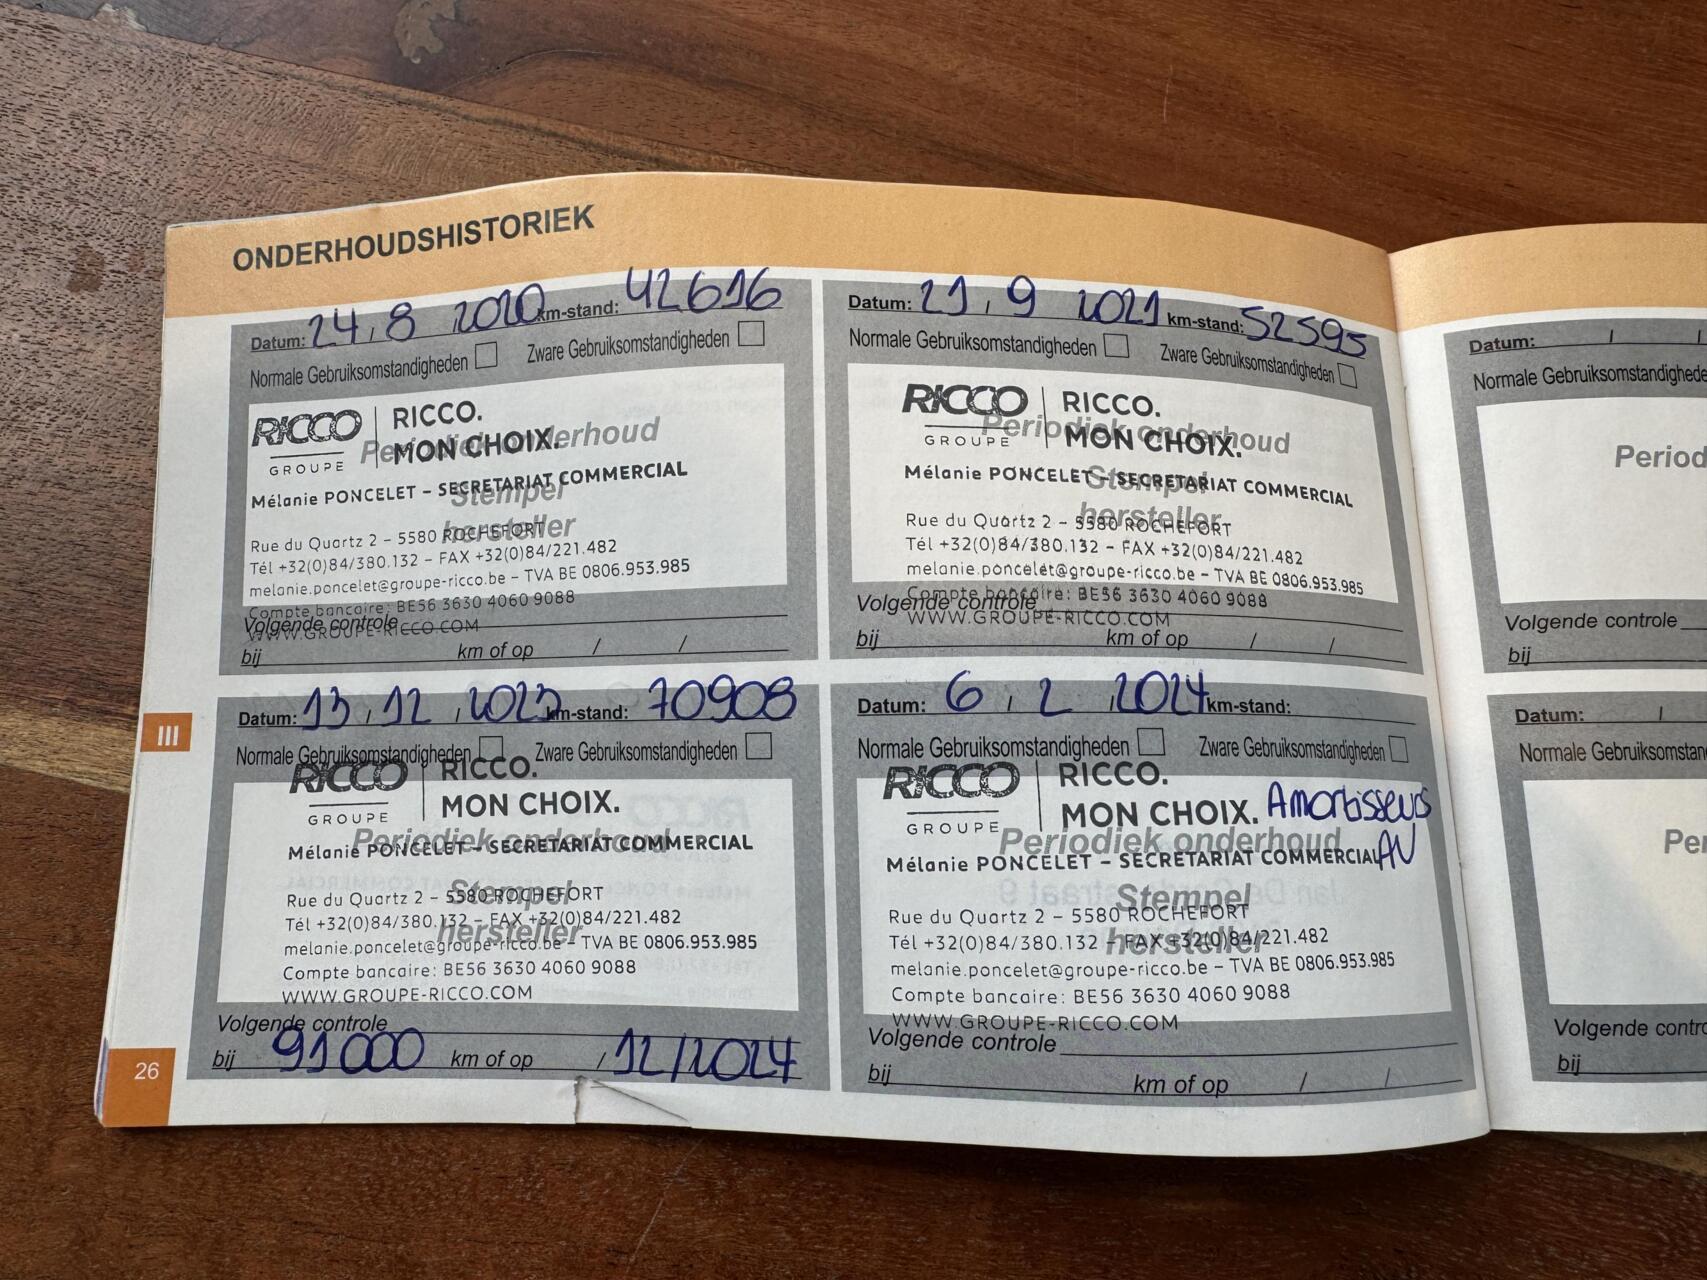 ONDERHOUDSHISTORIEK
Datum: 24 , 8 2020 km-stand: 42616
Normale Gebruiksomstandigheden Zware Gebruiksomstandigheden
RICCO GROUPE
RICCO.
MON CHOIX.
Periodiek onderhoud
Mélanie PONCELET – SECRETARIAT COMMERCIAL
Stempel
hersteller
Rue du Quartz 2 – 5580 ROCHEFORT
Tél +32(0)84/380.132 – FAX +32(0)84/221.482
melanie.poncelet@groupe-ricco.be – TVA BE 0806.953.985
Compte bancaire: BE56 3630 4060 9088
Volgende controle
WWW.GROUPE-RICCO.COM
bij km of op / /
Datum: 21 , 9 2021 km-stand: 52595
Normale Gebruiksomstandigheden Zware Gebruiksomstandigheden
RICCO GROUPE
RICCO.
MON CHOIX.
Periodiek onderhoud
Mélanie PONCELET – SECRETARIAT COMMERCIAL
Stempel
hersteller
Rue du Quartz 2 – 5580 ROCHEFORT
Tél +32(0)84/380.132 – FAX +32(0)84/221.482
melanie.poncelet@groupe-ricco.be – TVA BE 0806.953.985
Compte bancaire: BE56 3630 4060 9088
Volgende controle
WWW.GROUPE-RICCO.COM
bij km of op / /
III
Datum: 13 , 12 , 2023 km-stand: 70908
Normale Gebruiksomstandigheden Zware Gebruiksomstandigheden
RICCO GROUPE
RICCO.
MON CHOIX.
Periodiek onderhoud
Mélanie PONCELET – SECRETARIAT COMMERCIAL
Stempel
hersteller
5580 ROCHEFORT
Tél +32(0)84/380.132 – FAX +32(0)84/221.482
melanie.poncelet@groupe-ricco.be – TVA BE 0806.953.985
Compte bancaire: BE56 3630 4060 9088
WWW.GROUPE-RICCO.COM
Volgende controle
bij 91000 km of op / 12/2024
Datum: 6 , 2 , 2024 km-stand:
Normale Gebruiksomstandigheden Zware Gebruiksomstandigheden
RICCO GROUPE
RICCO.
MON CHOIX. Amortisseurs
AV
Periodiek onderhoud
Mélanie PONCELET – SECRETARIAT COMMERCIAL
Stempel
hersteller
Rue du Quartz 2 – 5580 ROCHEFORT
Tél +32(0)84/380.132 – FAX +32(0)84/221.482
melanie.poncelet@groupe-ricco.be – TVA BE 0806.953.985
Compte bancaire: BE56 3630 4060 9088
WWW.GROUPE-RICCO.COM
Volgende controle
bij km of op / /
26
Datum: / /
Normale Gebruiksomstandighede
Period
Volgende controle
bij
Datum: /
Normale Gebruiksomstan
Pe
Volgende contro
bij